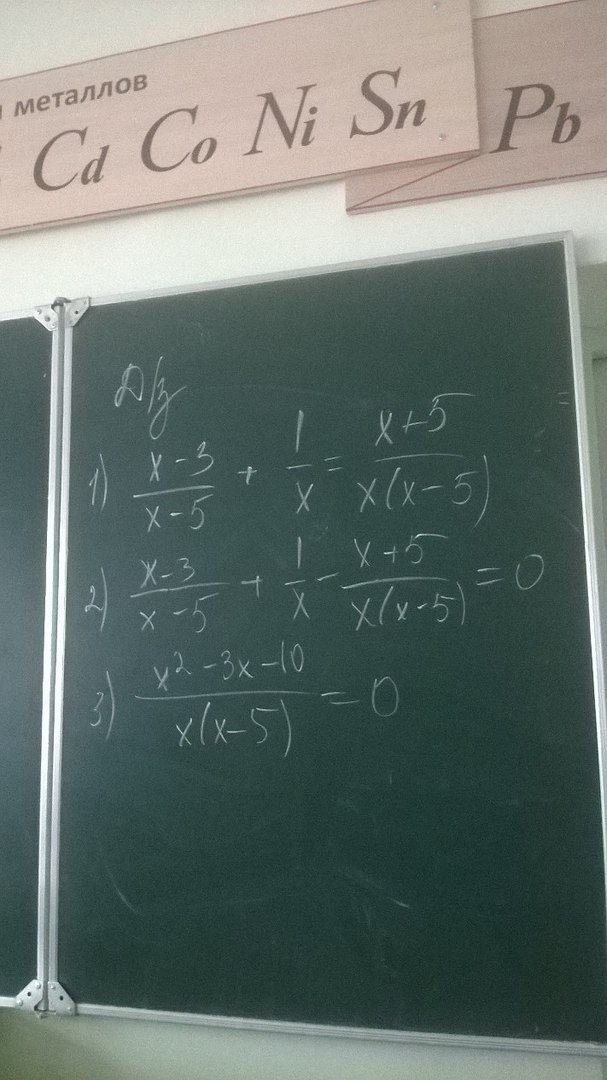 и металлов
Cd Co Ni Sn Pb
Д/з
1) \frac{x-3}{x-5} + \frac{1}{x} = \frac{x+5}{x(x-5)}
2) \frac{x-3}{x-5} + \frac{1}{x} - \frac{x+5}{x(x-5)} = 0
3) \frac{x^2-3x-10}{x(x-5)} = 0